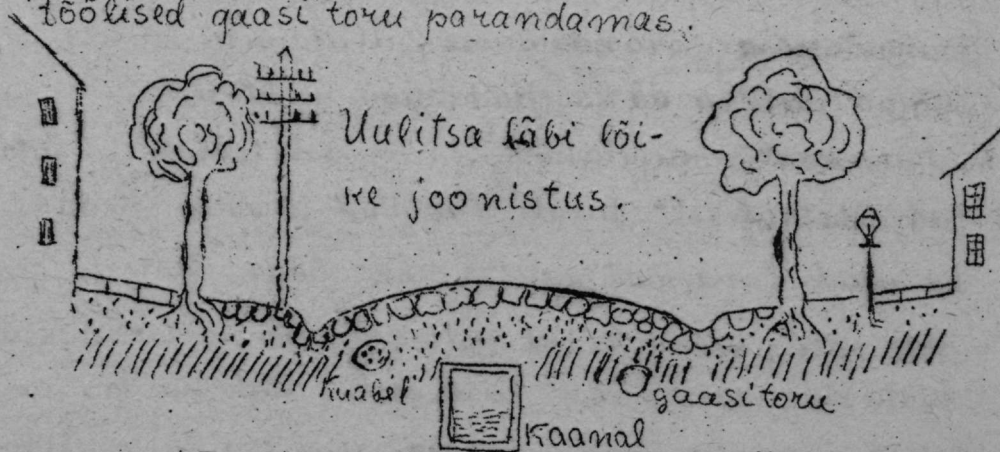 töölised gaasi toru parandamas.
Uulitsa läbi lõi-
ke joonistus.
Kuabel
gaasitoru
Kaanal